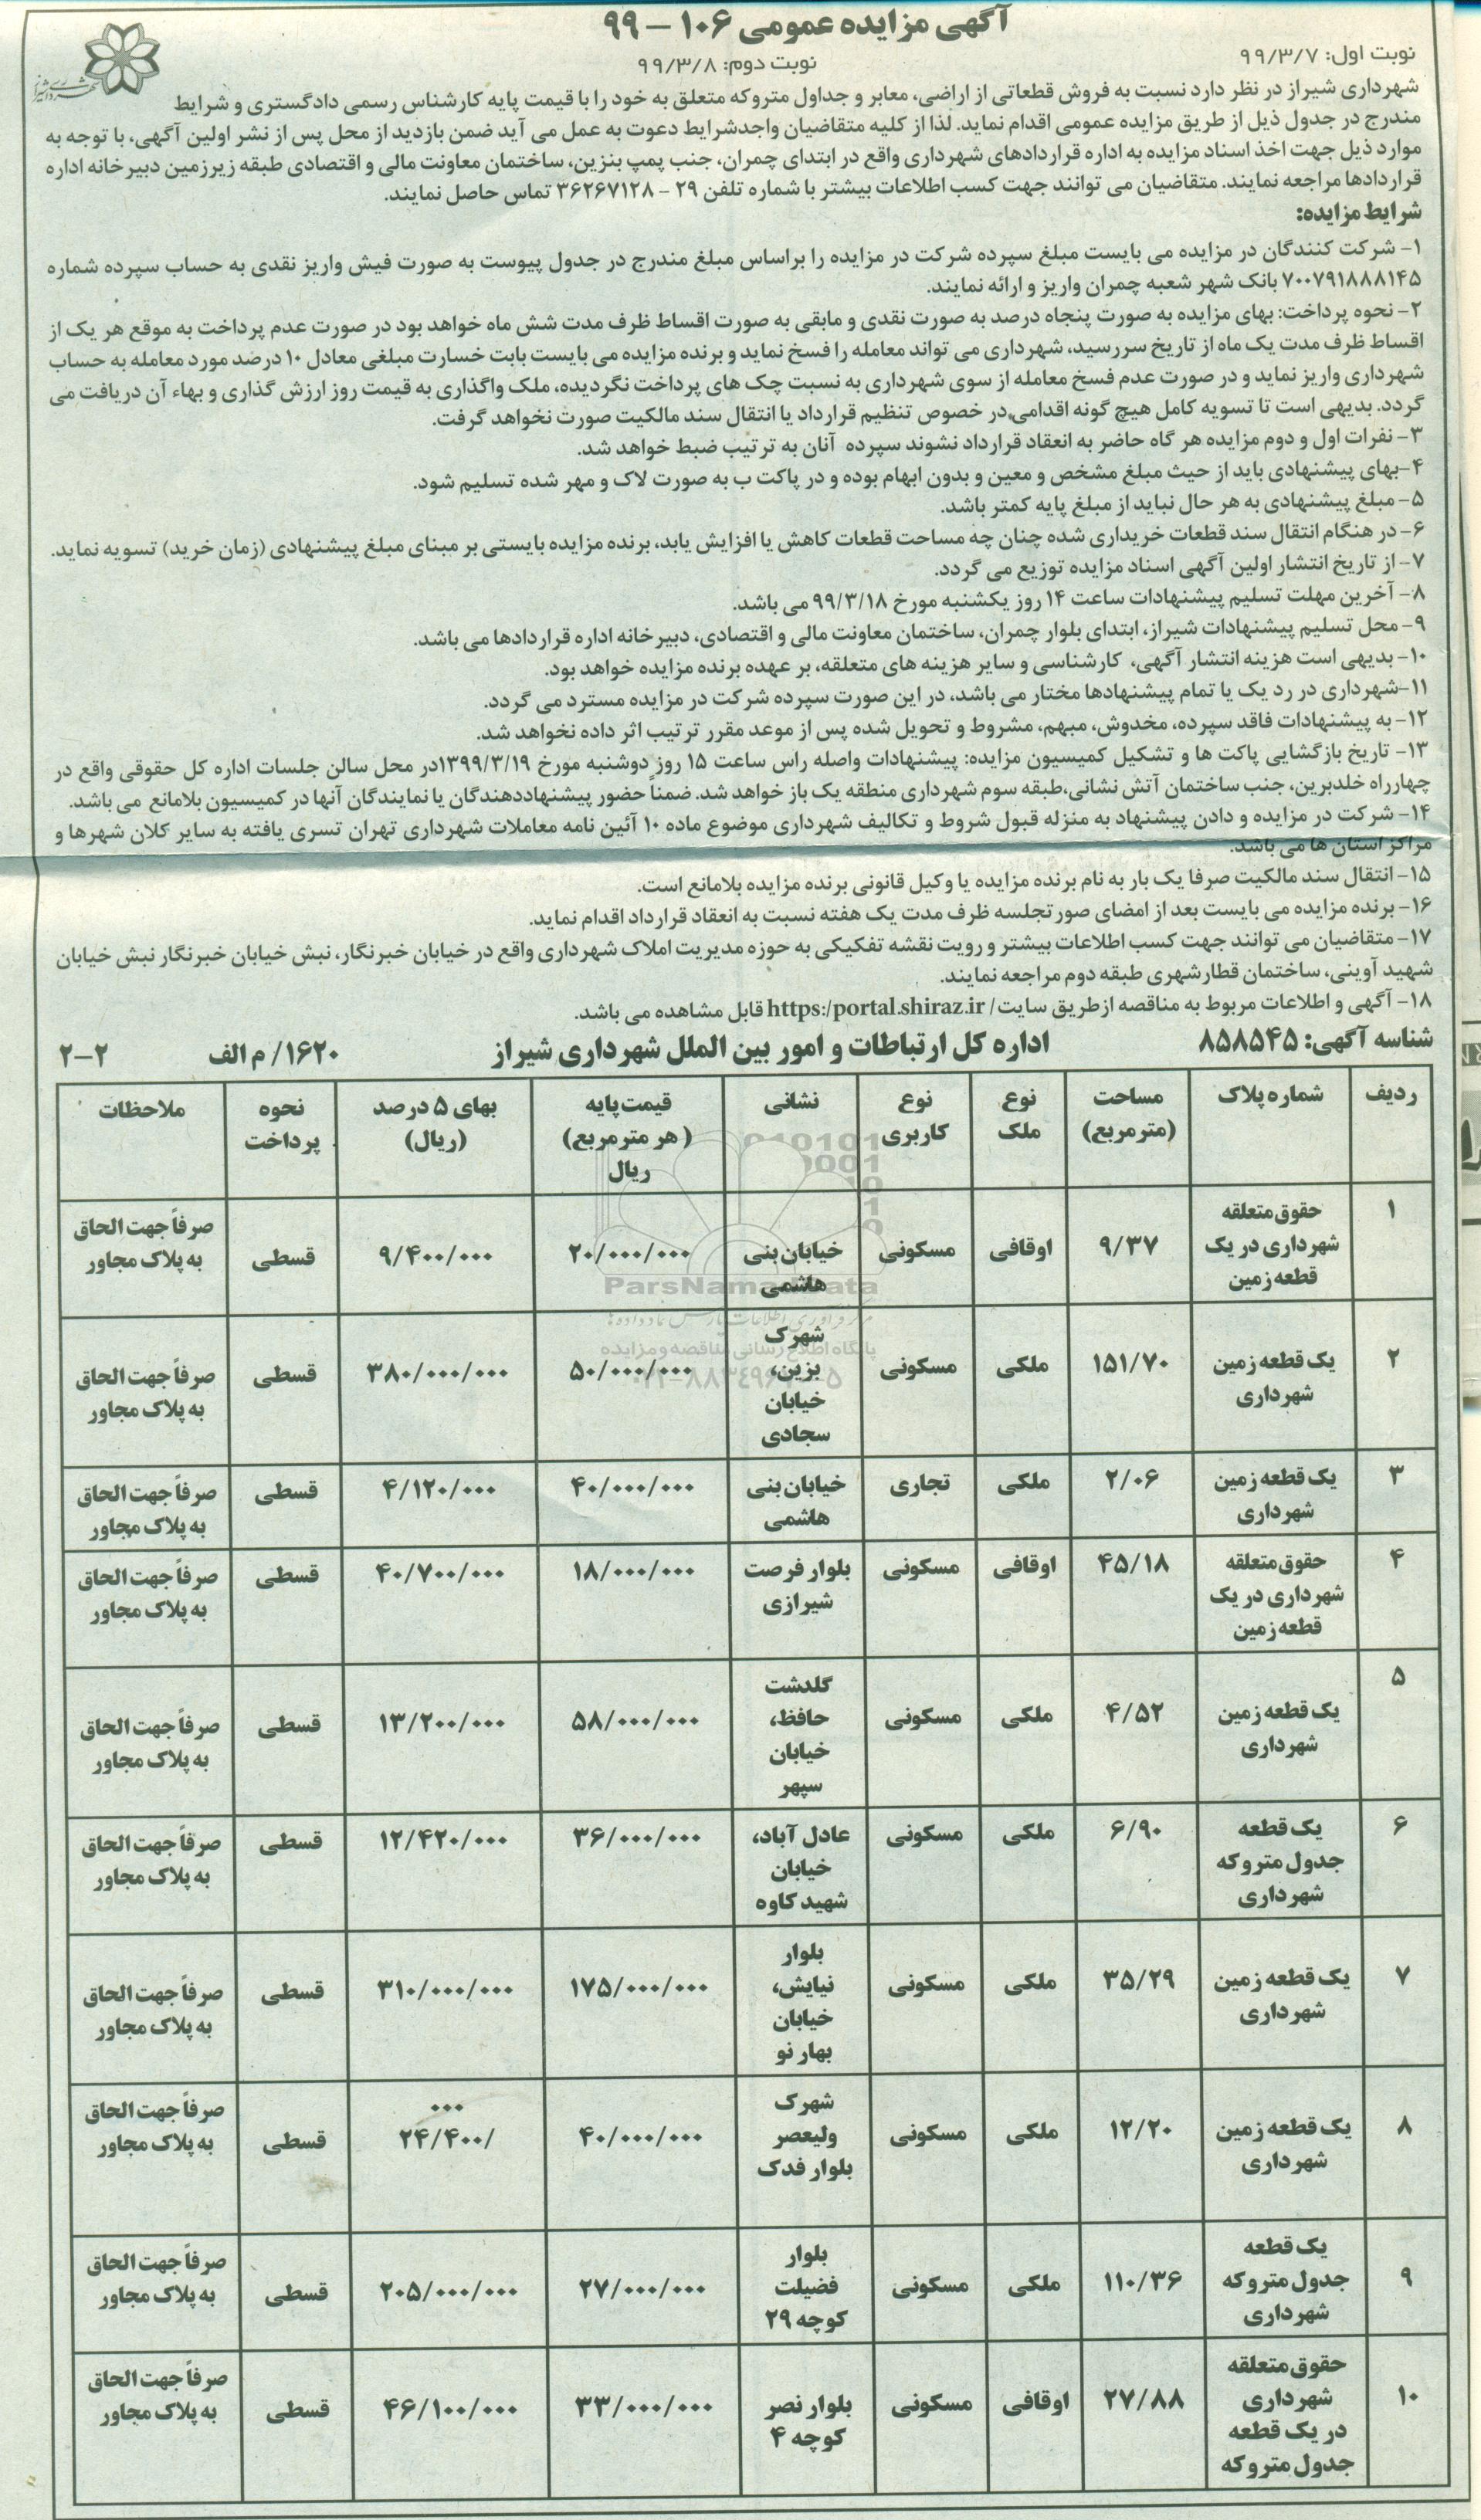 آگهی مزایده عمومی ۱۰۶ – ۹۹
نوبت اول: ۹۹/۳/۷
نوبت دوم: ۹۹/۳/۸
شهرداری شیراز در نظر دارد نسبت به فروش قطعاتی از اراضی، معابر و جداول متروکه متعلق به خود را با قیمت پایه کارشناس رسمی دادگستری و شرایط
مندرج در جدول ذیل از طریق مزایده عمومی اقدام نماید. لذا از کلیه متقاضیان واجدشرایط دعوت به عمل می آید ضمن بازدید از محل پس از نشر اولین آگهی، با توجه به
موارد ذیل جهت اخذ اسناد مزایده به اداره قراردادهای شهرداری واقع در ابتدای چمران، جنب پمپ بنزین، ساختمان معاونت مالی و اقتصادی طبقه زیرزمین دبیرخانه اداره
قراردادها مراجعه نمایند. متقاضیان می توانند جهت کسب اطلاعات بیشتر با شماره تلفن ۲۹ – ۳۶۲۶۷۱۲۸ تماس حاصل نمایند.
شرایط مزایده:
۱- شرکت کنندگان در مزایده می بایست مبلغ سپرده شرکت در مزایده را براساس مبلغ مندرج در جدول پیوست به صورت فیش واریز نقدی به حساب سپرده شماره
۷۰۰۷۹۱۸۸۸۱۴۵ بانک شهر شعبه چمران واریز و ارائه نمایند.
۲- نحوه پرداخت: بهای مزایده به صورت پنجاه درصد به صورت نقدی و مابقی به صورت اقساط ظرف مدت شش ماه خواهد بود در صورت عدم پرداخت به موقع هر یک از
اقساط ظرف مدت یک ماه از تاریخ سررسید، شهرداری می تواند معامله را فسخ نماید و برنده مزایده می بایست بابت خسارت مبلغی معادل ۱۰ درصد مورد معامله به حساب
شهرداری واریز نماید و در صورت عدم فسخ معامله از سوی شهرداری به نسبت چک های پرداخت نگردیده، ملک واگذاری به قیمت روز ارزش گذاری و بهاء آن دریافت می
گردد. بدیهی است تا تسویه کامل هیچ گونه اقدامی در خصوص تنظیم قرارداد یا انتقال سند مالکیت صورت نخواهد گرفت.
۳- نفرات اول و دوم مزایده هر گاه حاضر به انعقاد قرارداد نشوند سپرده آنان به ترتیب ضبط خواهد شد.
۴-بهای پیشنهادی باید از حیث مبلغ مشخص و معین و بدون ابهام بوده و در پاکت ب به صورت لاک و مهر شده تسلیم شود.
۵- مبلغ پیشنهادی به هر حال نباید از مبلغ پایه کمتر باشد.
۶- در هنگام انتقال سند قطعات خریداری شده چنان چه مساحت قطعات کاهش یا افزایش یابد، برنده مزایده بایستی بر مبنای مبلغ پیشنهادی (زمان خرید) تسویه نماید.
۷- از تاریخ انتشار اولین آگهی اسناد مزایده توزیع می گردد.
۸- آخرین مهلت تسلیم پیشنهادات ساعت ۱۴ روز یکشنبه مورخ ۹۹/۳/۱۸ می باشد.
۹- محل تسلیم پیشنهادات شیراز، ابتدای بلوار چمران، ساختمان معاونت مالی و اقتصادی، دبیرخانه اداره قراردادها می باشد.
۱۰- بدیهی است هزینه انتشار آگهی، کارشناسی و سایر هزینه های متعلقه، بر عهده برنده مزایده خواهد بود.
۱۱-شهرداری در رد یک یا تمام پیشنهادها مختار می باشد، در این صورت سپرده شرکت در مزایده مسترد می گردد.
۱۲- به پیشنهادات فاقد سپرده، مخدوش، مبهم، مشروط و تحویل شده پس از موعد مقرر ترتیب اثر داده نخواهد شد.
۱۳- تاریخ بازگشایی پاکت ها و تشکیل کمیسیون مزایده: پیشنهادات واصله راس ساعت ۱۵ روز دوشنبه مورخ ۱۳۹۹/۳/۱۹در محل سالن جلسات اداره کل حقوقی واقع در
چهارراه خلدبرین، جنب ساختمان آتش نشانی،طبقه سوم شهرداری منطقه یک باز خواهد شد. ضمناً حضور پیشنهاددهندگان یا نمایندگان آنها در کمیسیون بلامانع می باشد.
۱۴- شرکت در مزایده و دادن پیشنهاد به منزله قبول شروط و تکالیف شهرداری موضوع ماده ۱۰ آئین نامه معاملات شهرداری تهران تسری یافته به سایر کلان شهرها و
مراکز استان ها می باشد.
۱۵- انتقال سند مالکیت صرفا یک بار به نام برنده مزایده یا وکیل قانونی برنده مزایده بلامانع است.
۱۶- برنده مزایده می بایست بعد از امضای صورتجلسه ظرف مدت یک هفته نسبت به انعقاد قرارداد اقدام نماید.
۱۷- متقاضیان می توانند جهت کسب اطلاعات بیشتر و رویت نقشه تفکیکی به حوزه مدیریت املاک شهرداری واقع در خیابان خبرنگار، نبش خیابان خبرنگار نبش خیابان
شهید آوینی، ساختمان قطارشهری طبقه دوم مراجعه نمایند.
۱۸- آگهی و اطلاعات مربوط به مناقصه ازطریق سایت/ https:/portal.shiraz.ir قابل مشاهده می باشد.
شناسه آگهی: ۸۵۸۵۴۵ اداره کل ارتباطات و امور بین الملل شهرداری شیراز ۱۶۲۰/ م الف ۲-۲
ردیف شماره پلاک مساحت (مترمربع) نوع ملک نوع کاربری نشانی قیمت پایه (هر مترمربع) ریال بهای ۵ درصد (ریال) نحوه پرداخت ملاحظات
۱ حقوق متعلقه شهرداری در یک قطعه زمین ۹/۳۷ اوقافی مسکونی خیابان بنی هاشمی ۲۰/۰۰۰/۰۰۰ ۹/۴۰۰/۰۰۰ قسطی صرفاً جهت الحاق به پلاک مجاور
۲ یک قطعه زمین شهرداری ۱۵۱/۷۰ ملکی مسکونی شهرک بزین، خیابان سجادی ۵۰/۰۰۰/۰۰۰ ۳۸۰/۰۰۰/۰۰۰ قسطی صرفاً جهت الحاق به پلاک مجاور
۳ یک قطعه زمین شهرداری ۲/۰۶ ملکی تجاری خیابان بنی هاشمی ۴۰/۰۰۰/۰۰۰ ۴/۱۲۰/۰۰۰ قسطی صرفاً جهت الحاق به پلاک مجاور
۴ حقوق متعلقه شهرداری در یک قطعه زمین ۴۵/۱۸ اوقافی مسکونی بلوار فرصت شیرازی ۱۸/۰۰۰/۰۰۰ ۴۰/۷۰۰/۰۰۰ قسطی صرفاً جهت الحاق به پلاک مجاور
۵ یک قطعه زمین شهرداری ۴/۵۲ ملکی مسکونی گلدشت حافظ، خیابان سپهر ۵۸/۰۰۰/۰۰۰ ۱۳/۲۰۰/۰۰۰ قسطی صرفاً جهت الحاق به پلاک مجاور
۶ یک قطعه جدول متروکه شهرداری ۶/۹۰ ملکی مسکونی عادل آباد، خیابان شهید کاوه ۳۶/۰۰۰/۰۰۰ ۱۲/۴۲۰/۰۰۰ قسطی صرفاً جهت الحاق به پلاک مجاور
۷ یک قطعه زمین شهرداری ۳۵/۲۹ ملکی مسکونی بلوار نیایش، خیابان بهار نو ۱۷۵/۰۰۰/۰۰۰ ۳۱۰/۰۰۰/۰۰۰ قسطی صرفاً جهت الحاق به پلاک مجاور
۸ یک قطعه زمین شهرداری ۱۲/۲۰ ملکی مسکونی شهرک ولیعصر بلوار فدک ۴۰/۰۰۰/۰۰۰ ۲۴/۴۰۰/۰۰۰ قسطی صرفاً جهت الحاق به پلاک مجاور
۹ یک قطعه جدول متروکه شهرداری ۱۱۰/۳۶ ملکی مسکونی بلوار فضیلت کوچه ۲۹ ۲۷/۰۰۰/۰۰۰ ۲۰۵/۰۰۰/۰۰۰ قسطی صرفاً جهت الحاق به پلاک مجاور
۱۰ حقوق متعلقه شهرداری در یک قطعه جدول متروکه ۲۷/۸۸ اوقافی مسکونی بلوار نصر کوچه ۴ ۳۳/۰۰۰/۰۰۰ ۴۶/۱۰۰/۰۰۰ قسطی صرفاً جهت الحاق به پلاک مجاور